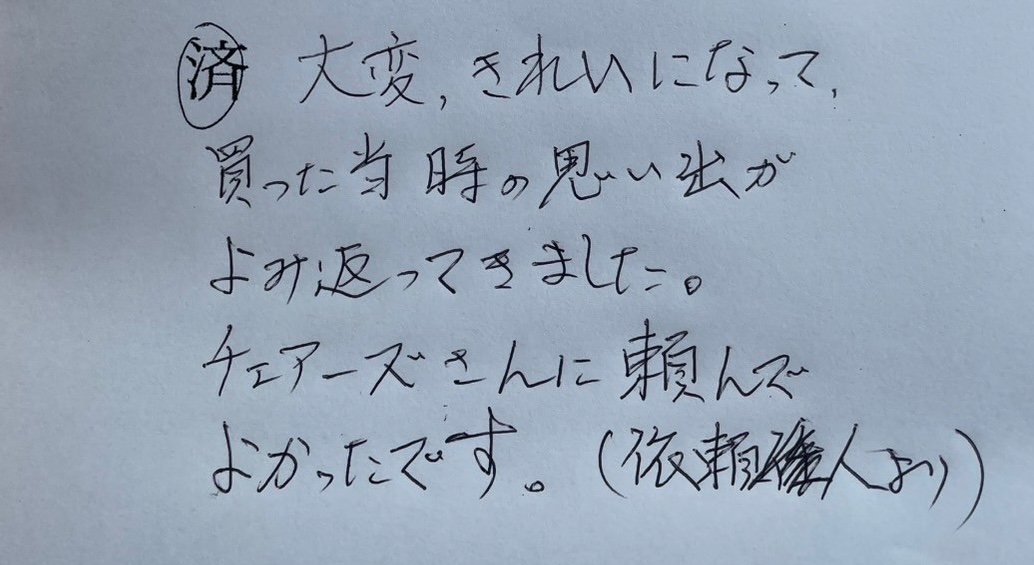 ㊮済 大変、きれいになって、
買った当時の思い出が
よみ返ってきました。
チェアーズさんに頼んで
よかったです。(依頼人より)